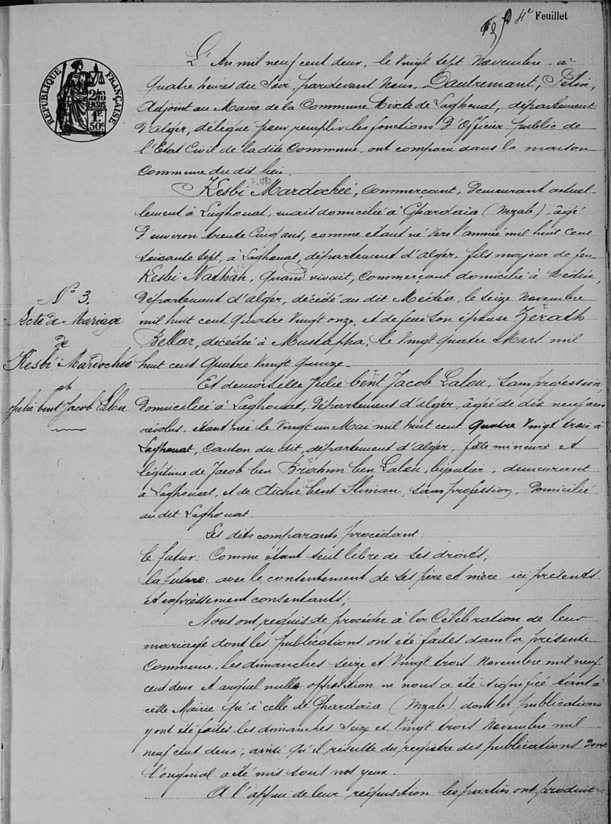 4e Feuillet
RÉPUBLIQUE FRANÇAISE
L'An mil neuf cent deux, le Vingt Sept Novembre à
Quatre heures du Soir, pardevant Nous, Dautremant,
Adjoint au Maire de la Commune Mixte de Laghouat, département
d'Alger, délégué pour remplir les fonctions d'Officier public de
l'Etat Civil de la dite Commune, ont comparu dans la maison
Commune du dit lieu.
Kesbi Mardochée, Commerçant, demeurant actuel-
lement à Laghouat, mais domicilié à Ghardaïa (Mzab), âgé
d'environ trente cinq ans, comme étant né vers l'année mil huit cent
soixante sept, à Laghouat, département d'Alger, fils majeur de feu
Kesbi Nathan, quand vivait, Commerçant domicilié à Médéa,
Département d'Alger, décédé au dit Médéa, le seize Novembre
mil huit cent Quatre Vingt onze, et de feue son épouse Zérath
Bellar, décédée à Mustapha, le Vingt Quatre Mars mil
huit cent Quatre Vingt Quinze.
N° 3.
Acte de Mariage
de
Kesbi Mardochée
et
Julie bent Jacob Lalou
Et demoiselle Julie bent Jacob Lalou, Sans profession,
Domiciliée à Laghouat, Département d'Alger, âgée de dix neuf ans
révolus, étant née le Vingt un Mai mil huit cent Quatre Vingt trois à
Laghouat, Canton du dit, département d'Alger, fille mineure et
légitime de Jacob ben Brahim ben Lalou, bijoutier, demeurant
à Laghouat, et de Aicha bent Sliman, Sans profession, domiciliée
au dit Laghouat.
Les dits comparants procédant:
le futur: Comme étant seul libre de ses droits;
la future avec le consentement de ses père et mère ici présents
et expressément consentants;
Nous ont requis de procéder à la Célébration de leur
mariage dont les publications ont été faites dans la présente
Commune, les dimanches Seize et Vingt trois Novembre mil neuf
cent deux et auquel nulle opposition ne nous a été signifiée tant à
cette Mairie qu'à celle de Ghardaïa (Mzab), dont les publications
y ont été faites les dimanches Seize et Vingt trois Novembre mil
neuf cent deux, ainsi qu'il résulte du registre des publications dont
l'original a été mis sous nos yeux.
A l'appui de leur réquisition les parties ont produit